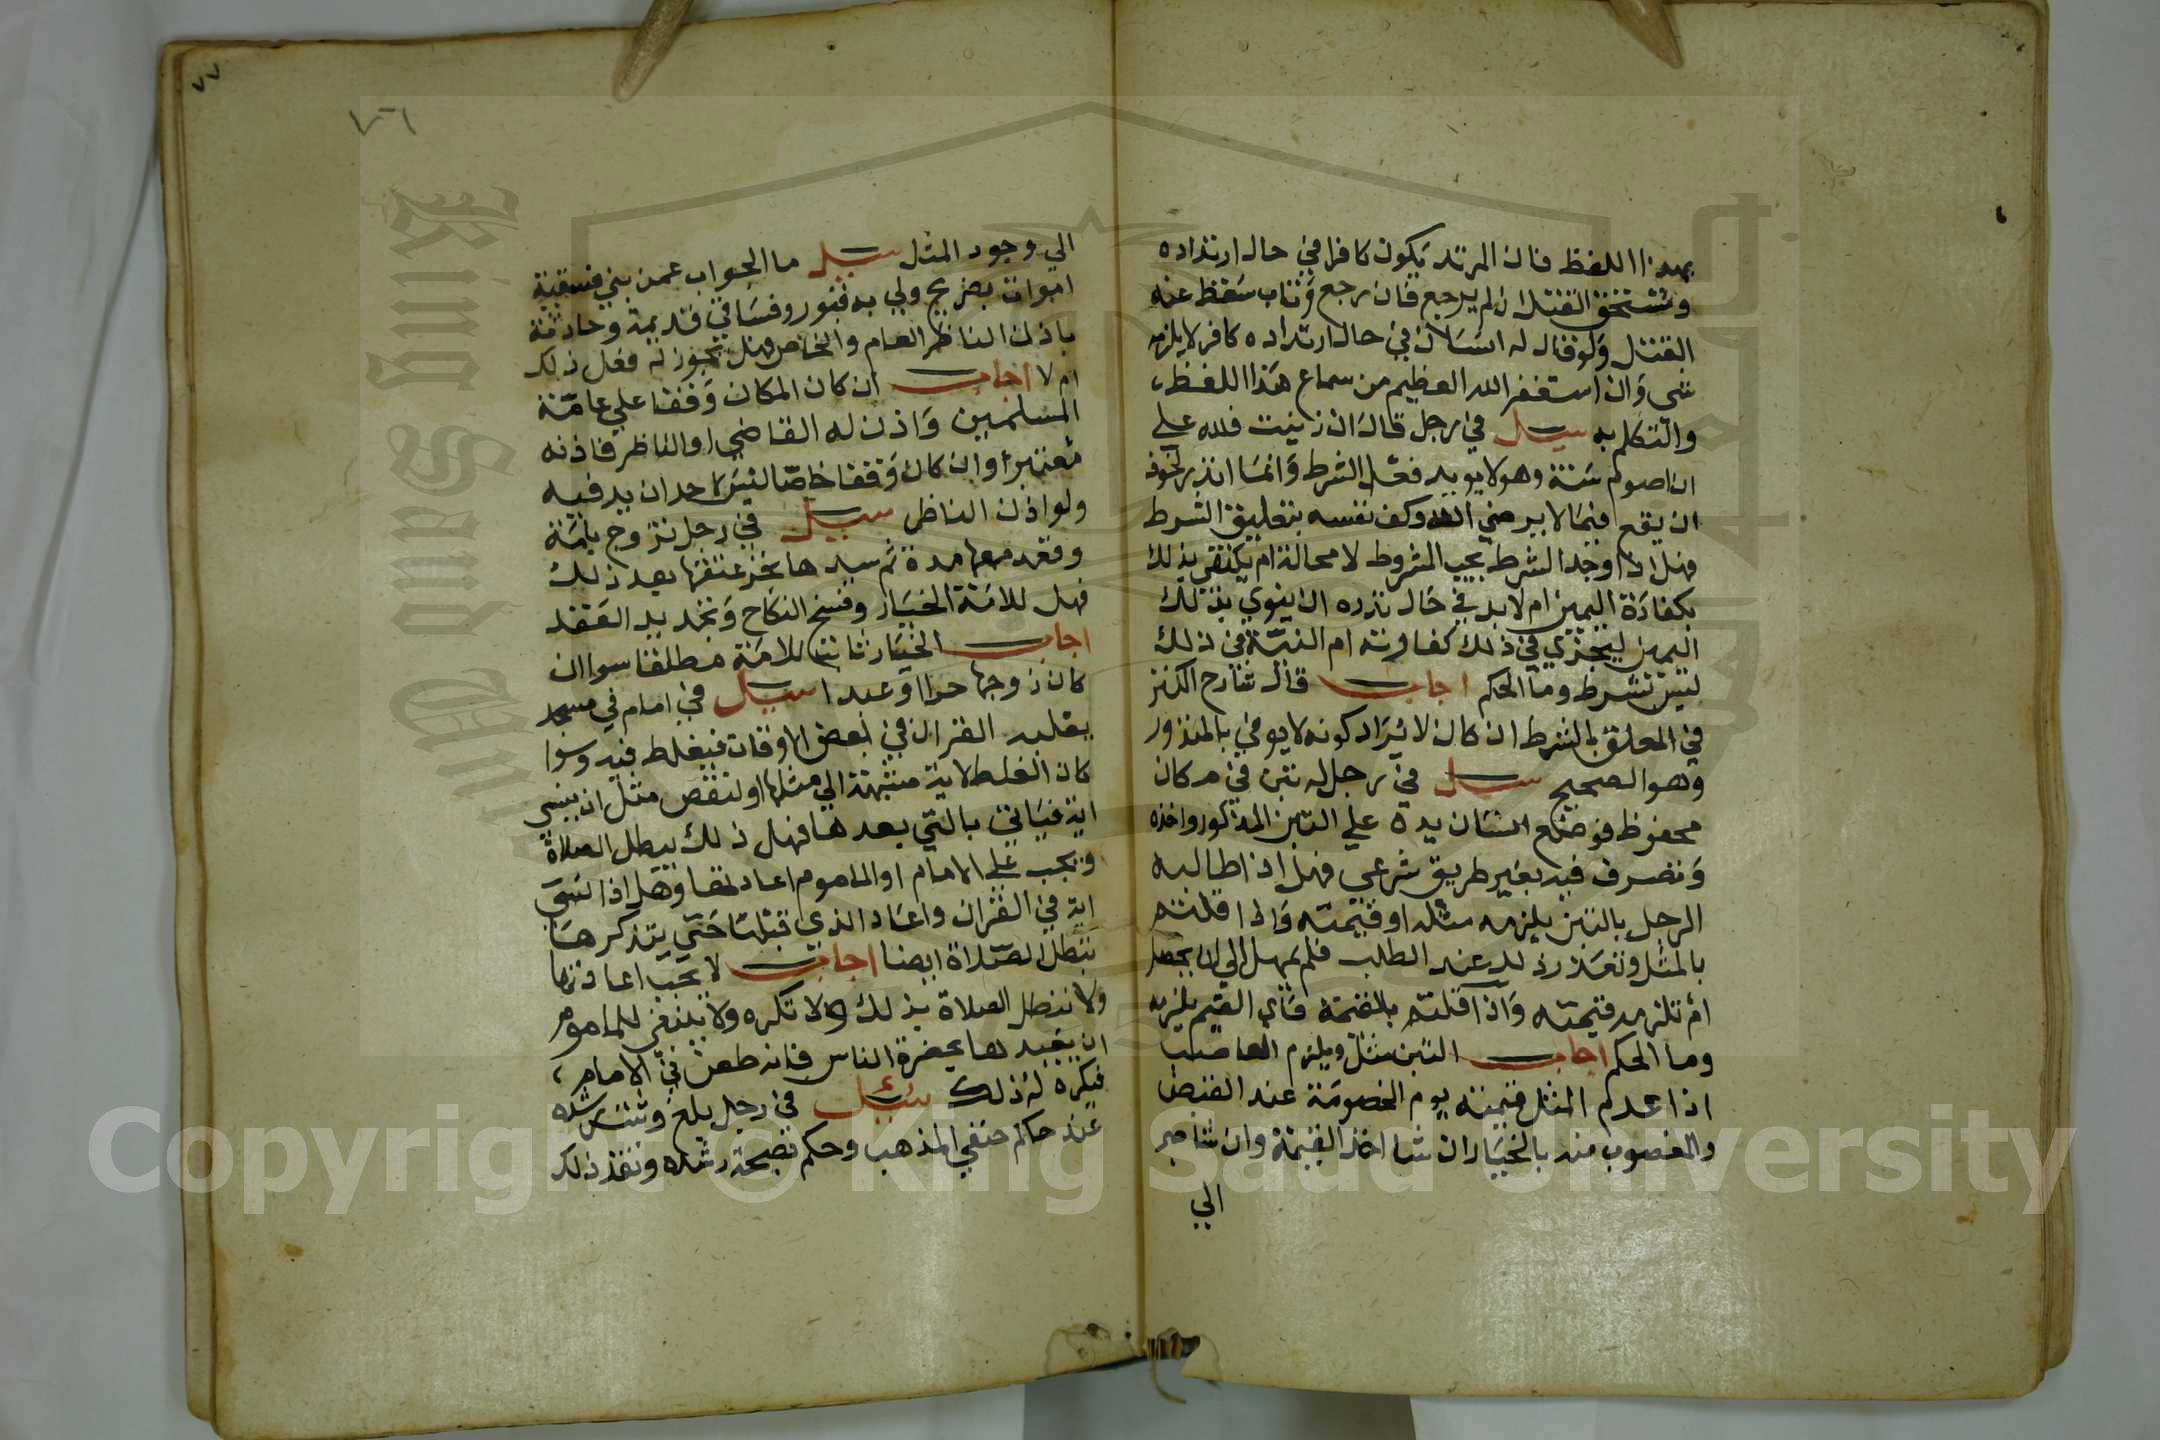 بهذا اللفظ فان المرتد يكون كافرا في حال ارتداده
وتستحق القتل ان لم يرجع فان رجع وتاب سقط عنه
القتل ولو قال له انسان في حال ارتداده كافر لا يلزمه
شي وان استغفر الله العظيم من سماع هذا اللفظ،
والتكلم به سيل في رجل قال ان زنيت فلله علي
ان اصوم سنة وهو لا يريد فعل الشرط وانما نذر لخوف
ان يقع فيما لا يرضي الله وكف نفسه بتعليق الشرط
فهل اذا وجد الشرط يجب المشروط لا محالة ام يكتفي بذلك
بكفارة اليمين ام لا بد في حال نذره ان ينوي بذلك
اليمين ليجزي في ذلك كفارته ام النية في ذلك
ليس بشرط وما الحكم اجاب قال شارح الكنز
في المعلق بالشرط ان كان لا يراد كونه لا يوفي بالمنذور
وهو الصحيح سيل في رجل له تبن في مكان
محفوظ فوضع انسان يده علي التبن المذكور واخذه
وتصرف فيه بغير طريق شرعي فهل اذا طالبه
الرجل بالتبن يلزمه مثله او قيمته واذا قلتم
بالمثل وتعذر ذلك عند الطلب فلم يمهل الي ان يحصل
ام تلزمه قيمته واذا قلتم بالقيمة فاي القيم يلزمه
وما الحكم اجاب التبن مثلي ويلزم الغاصب
اذا عدم المثل قيمته يوم الخصومة عند القبض
والمغصوب منه بالخيار ان شا اخذ القيمة وان شا صبر
الي
٧٧
١٥٦
الي وجود المثل سيل ما الجواب عمن بني فسقية
اموات بضريح ولي به قبور وفساقي قديمة وحادثة
باذن الناظر العام والخاص فهل يجوز له فعل ذلك
ام لا اجاب ان كان المكان وقفا علي عامة
المسلمين واذن له القاضي او الناظر فاذنه
معتبر وان كان وقفا خاصا ليس لاحد ان يدفنه
ولو اذن الناظر سيل في رجل تزوج بامة
وقعد معها مدة ثم سيدها نجز عتقها بعد ذلك
فهل للامة الخيار وفسخ النكاح وتجديد العقد
اجاب الخيار ثابت للامة مطلقا سوا ان
كان زوجها حرا او عبدا سيل في امام في مسجد
يقلب القران في بعض الاوقات فيغلط فيه وسوا
كان الغلط لاية مشبهة الي مثلها او لنقص مثل ان ينسي
اية فياتي بالتي بعدها فهل ذلك يبطل الصلاة
ويجب علي الامام او الماموم اعادتها وهل اذا نسي
اية في القران واعاد الذي قبلها حتي يتذكرها
تبطل الصلاة ايضا اجاب لا يجب اعادتها
ولا تبطل الصلاة بذلك ولا تكره ولا ينبغي للماموم
ان يعيدها بحضرة الناس فانه طعن في الامام،
فيكره له ذلك سئيل في رجل بلغ وثبت رشده
عند حاكم حنفي المذهب وحكم بصحة رشده ونفذ ذلك
Copyright © King Saud University
King Saud University